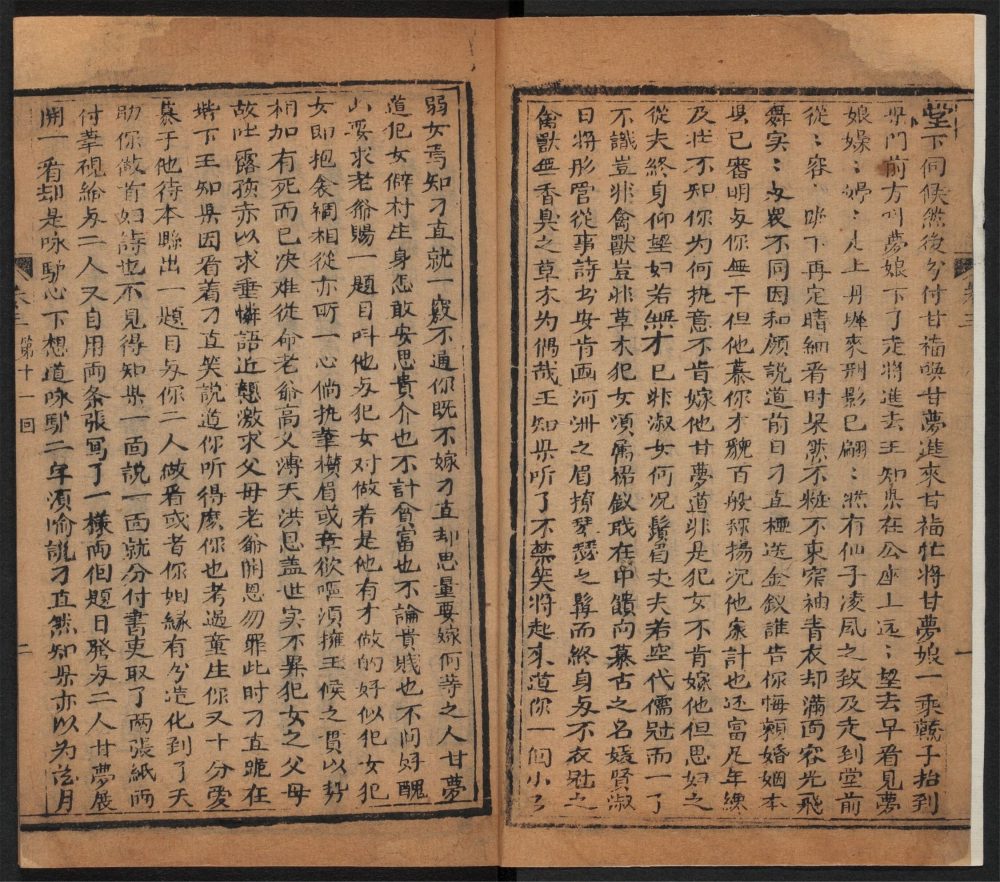 堂下伺候然後分付甘福喚甘夢進來甘福忙將甘夢娘一乘轎子抬到
門前方叫夢娘下了走將進去王知県在公座上远〻望去早看見夢
娘嫋〻婷〻走上丹墀來刑影已翩〻然有仙子凌風之致及走到堂前
從〻容 跪下再定睛細看時果然不粧不束窄袖青衣却滿面容光飛
舞实〻与衆不同因和顔說道前日刁直極送金釵誰告你悔賴婚姻本
県已審明与你無干但他慕你才貌百般 揚况他家計也还富足年
及壮不知你为何执意不肯嫁他甘夢道非是犯女不肯嫁他但思妇之
從夫終身仰望妇若無才已非淑女何况鬚眉丈夫若空代儒冠而一丁
不識豈非禽獸豈非草木犯女湏属裙釵戝在中饋向慕古之名媛賢淑
日將彤管從事詩书安肯画河洲之眉撩琴瑟之 而終身与不衣冠之
禽獸無香臭之草木为偶哉王知県听了不禁笑將起來道你一個小了
卷三
一
弱女焉知刁直就一竅不通你既不嫁刁直却思量要嫁何等之人甘夢
道犯女僻村生身怎敢妄思貴介也不計貧富也不論貴賎也不问好醜
只要求老爺賜一題目叫他与犯女对做若是他有才做的好似犯女犯
女即抱衾裯相從亦所一心倘执筆横眉或章欲嘔湏擁王侯之貫以势
相加有死而已决难從命老爺高义溥天洪恩盖世实不異犯女之父母
故吐露 亦以求垂憐語近 激求父母老爺開恩勿罪此时刁直跪在
堦下王知県因看着刁直笑說道你听得麽你也考過童生你又十分愛
慕于他待本縣出一題目与你二人做看或者你姻縁有分造化到了天
助你做首好詩也不見得知県一面說一面就分付書吏取了两張紙两
付筆硯給与二人又自用两条張写了一樣两個題目發与二人甘夢展
開一看却是咏馿心下想道咏馿二字湏喻說刁直然知県亦以为 月
卷三 第十一回
二